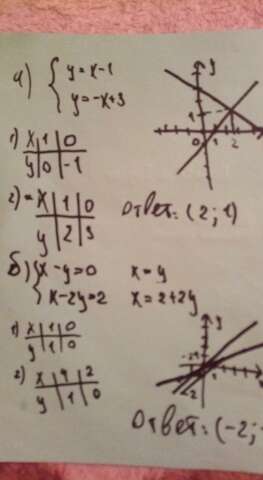 а) { y = x - 1
y = -x + 3
1) x | 1 | 0
y | 0 | -1
2) = x | 1 | 0
y | 2 | 3
Ответ: (2; 1)
б) { x - y = 0 x = y
x - 2y = 2 x = 2 + 2y
1) x | 1 | 0
y | 1 | 0
2) x | 4 | 2
y | 1 | 0
Ответ: (-2; -